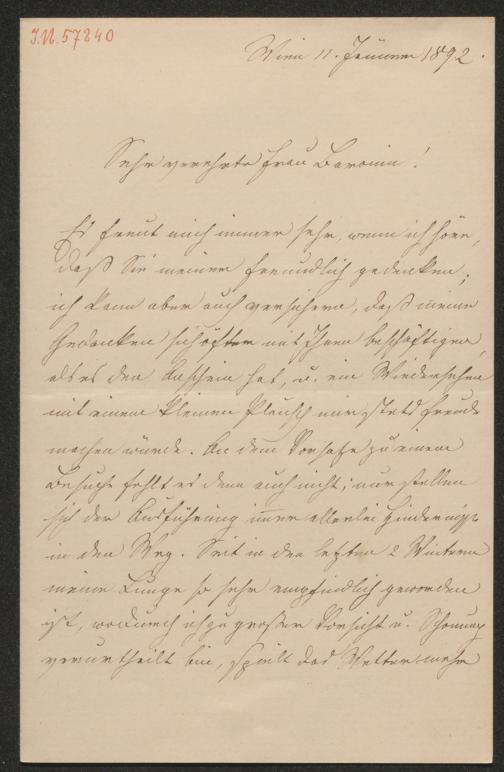 J.N. 57240
Wien 11. Jänner 1892.
Sehr verehrte Frau Baronin!
Es freut mich immer sehr, wenn ich höre,
daß Sie meiner freundlich gedenken;
ich kann aber auch versichern, daß meine
Gedanken sich öfter mit Ihnen beschäftigen,
als es den Anschein hat, u. ein Wiedersehen
mit einem kleinen Plausch mir stets Freude
machen würde. An dem Vorsatze zu einem
Besuche fehlt es denn auch nicht; nur stellen
sich der Ausführung immer allerlei Hindernisse
in den Weg. Seit in den letzten 2 Wintern
meine Lunge so sehr empfindlich geworden
ist, wodurch ich zu großer Vorsicht u. Schonung
verurtheilt bin, spielt das Wetter mehr